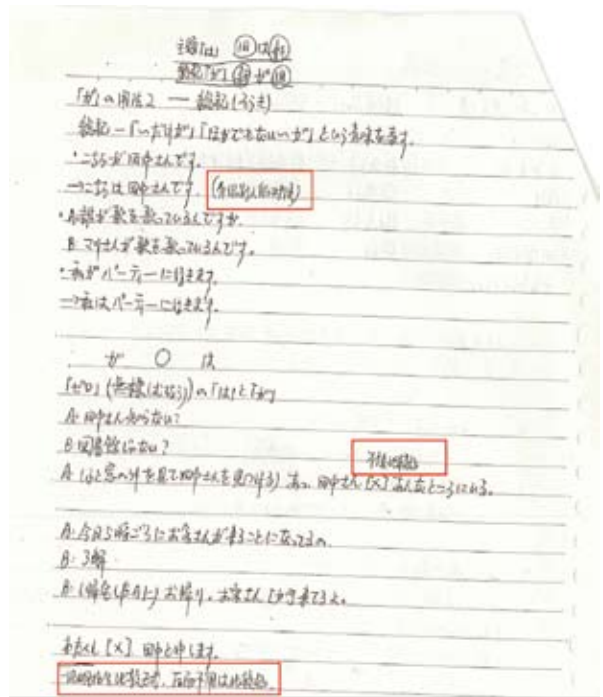 主題「は」 旧は新
総記「が」 新が旧
「が」の用法2 — 総記(そうき)
総記—「〜だけが」「ほかでもない〜が」という意味を表す。
・こちらが田中さんです。
→こちらは田中さんです。
・A:誰が歌を歌っているんですか。
B:マリさんが歌を歌っているんです。
・私がパーティーに行きます。
→私はパーティーに行きます。
が ○ は
「ゼロ」(無標)の「は」と「が」
A:田中さん知らない?
B:図書館じゃない?
A:(ふと窓の外を見て田中さんを見つける)あっ、田中さん[×]あんなところにいる。
A:今日5時ごろにお客さんが来ることになってるの。
B:了解
B:(帰宅したAに)お帰り。お客さん[が]来てるよ。
わたくし[×]田中と申します。